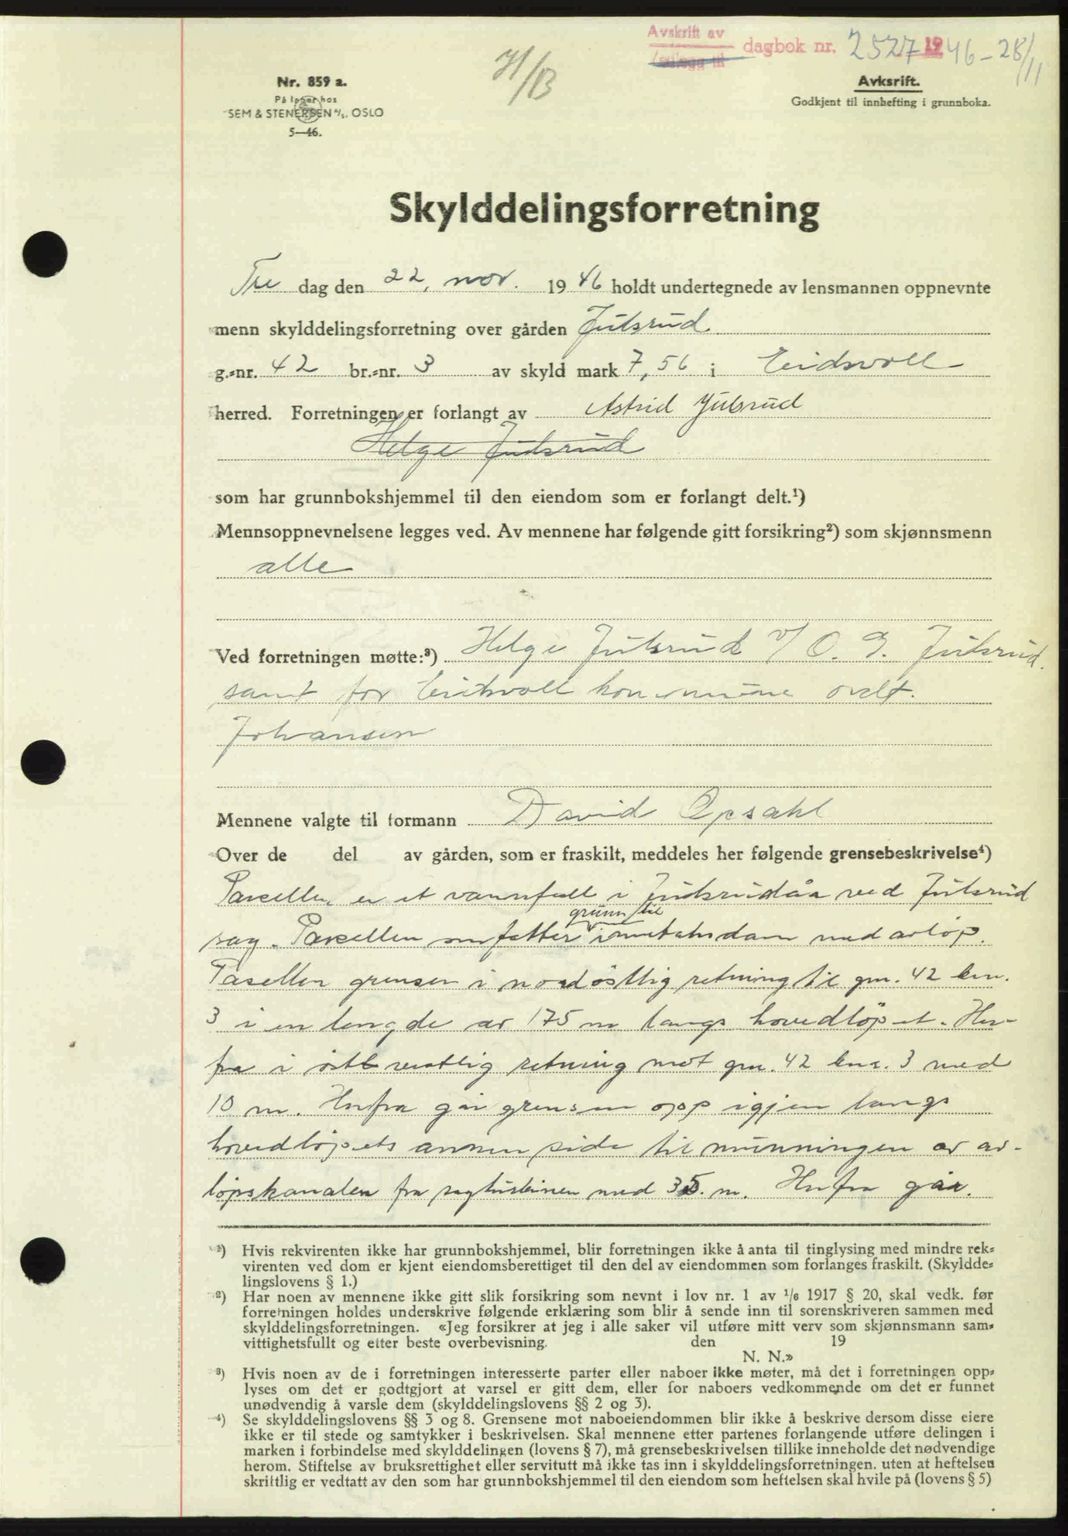 Avskrift av
dagbok nr. 2527 1946 - 28/11
Nr. 859 a.
På lager hos
SEM & STENERSEN A/S, OSLO
5—46.
H/B
Avksrift.
Godkjent til innhefting i grunnboka.
Skylddelingsforretning
Fre dag den 22. nov. 1946 holdt undertegnede av lensmannen oppnevnte
menn skylddelingsforretning over gården Julsrud
g.-nr. 42 br.-nr. 3 av skyld mark 7,56 i Eidsvoll
herred. Forretningen er forlangt av Astrid Julsrud
Helge Julsrud
som har grunnbokshjemmel til den eiendom som er forlangt delt.¹)
Mennsoppnevnelsene legges ved. Av mennene har følgende gitt forsikring²) som skjønnsmenn
alle
Ved forretningen møtte:³) Helge Julsrud v/ O. G. Julsrud.
samt for Eidsvoll kommune
Johansen
Mennene valgte til formann David Opsahl
Over de del av gården, som er fraskilt, meddeles her følgende grensebeskrivelse⁴)
Parcellen er et vannfall i Julsrudåa ved Julsrud
sag. Parcellen omfatter grunn til inntaksdam med avløp.
Parsellen grenser i nordöstlig retning til gnr. 42 bnr.
3 i en lengde av 175 m langs hovedlöpet. Her-
fra i retning mot gnr. 42 bnr. 3 med
10 m. Herfra går grensen opp igjen langs
hovedlöpets annen side til munningen av av-
löpskanalen fra med 35 m. Herfra går.
¹) Hvis rekvirenten ikke har grunnbokshjemmel, blir forretningen ikke å anta til tinglysing med mindre rek-
virenten ved dom er kjent eiendomsberettiget til den del av eiendommen som forlanges fraskilt. (Skyldde-
lingslovens § 1.)
²) Har noen av mennene ikke gitt slik forsikring som nevnt i lov nr. 1 av 1/6 1917 § 20, skal vedk. før
forretningen holdes underskrive følgende erklæring som blir å sende inn til sorenskriveren sammen med
skylddelingsforretningen. «Jeg forsikrer at jeg i alle saker vil utføre mitt verv som skjønnsmann sam-
vittighetsfullt og etter beste overbevisning. den 19
N. N.»
³) Hvis noen av de i forretningen interesserte parter eller naboer ikke møter, må det i forretningen opp-
lyses om det er godtgjort at varsel er gitt dem, eller for naboers vedkommende om det er funnet
unødvendig å varsle dem (skylddelingslovens §§ 2 og 3).
⁴) Se skylddelingslovens §§ 3 og 8. Grensene mot naboeiendommen blir ikke å beskrive dersom disse eiere
ikke er til stede og samtykker i beskrivelsen. Skal mennene etter partenes forlangende utføre delingen i
marken i forbindelse med skylddelingen (lovens § 7), må grensebeskrivelsen tillike inneholde det nødvendige
herom. Stiftelse av bruksrettighet eller servitutt må ikke tas inn i skylddelingsforretningen. uten at heftelsen
skriftlig er vedtatt av den som har grunnbokshjemmel til den eiendom som heftelsen skal hvile på (lovens § 5)